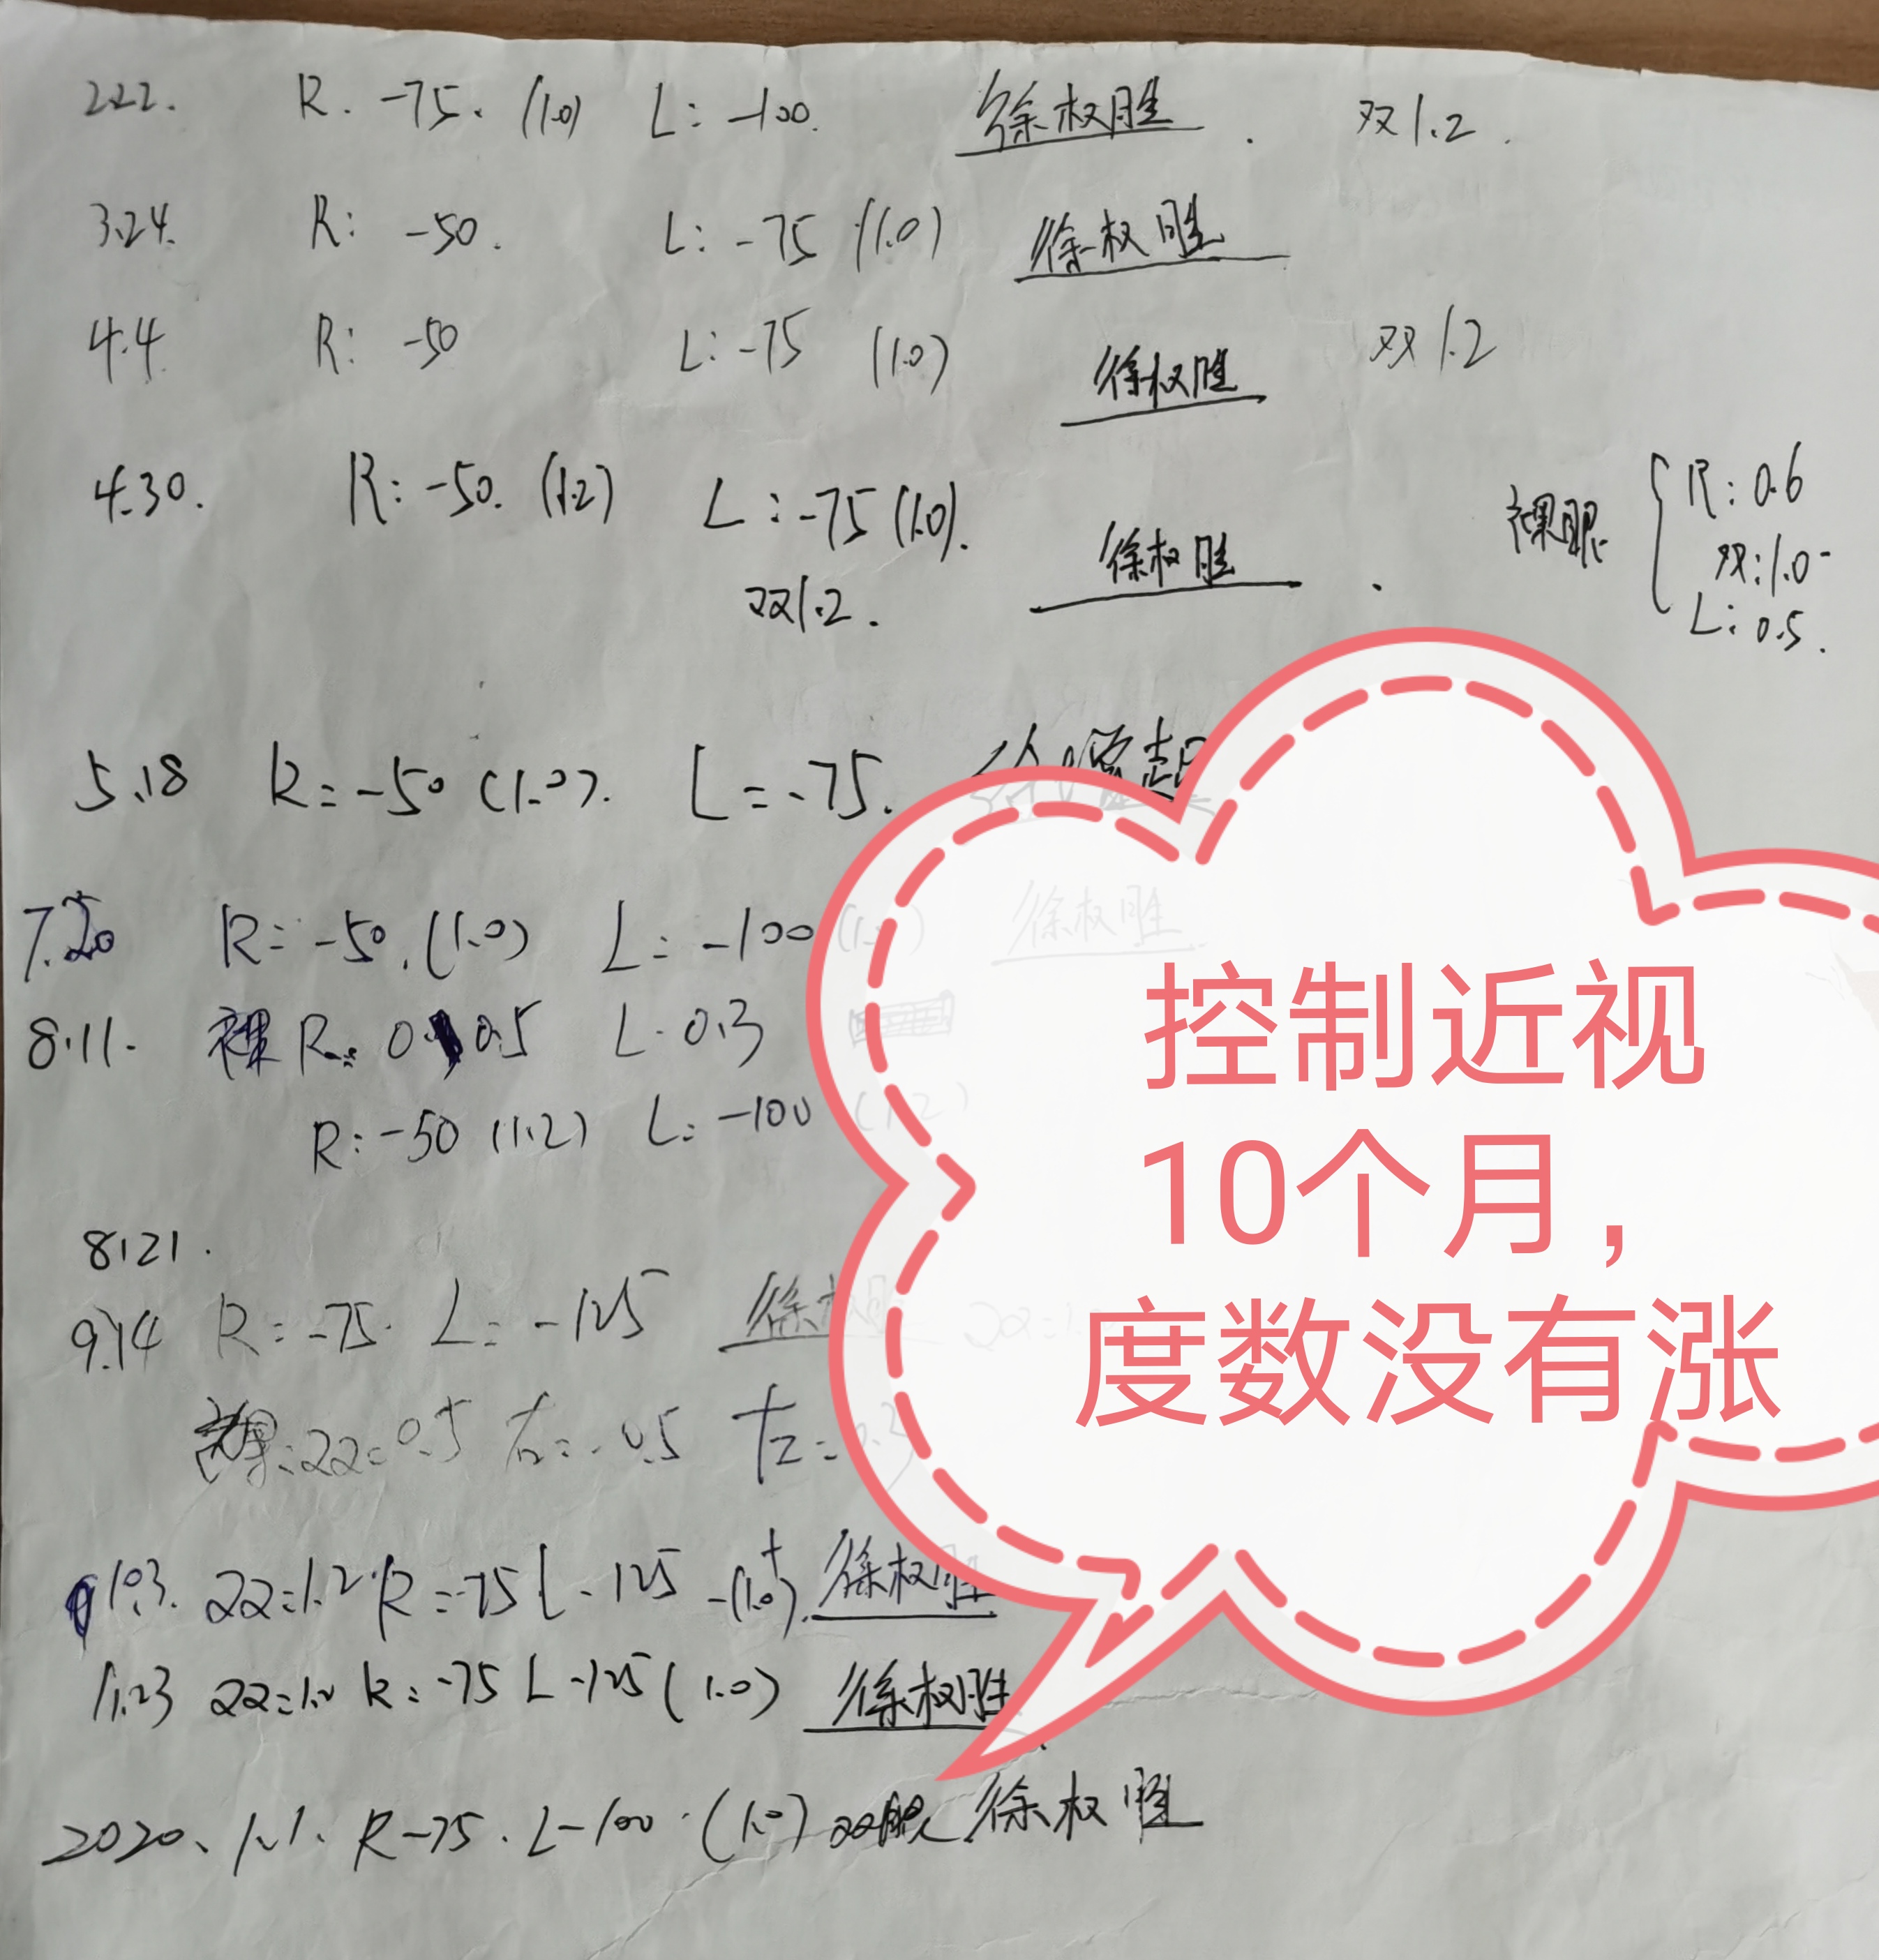 2.22. R. -75. (1.0) L: -100. 徐权胜. 双1.2.
3.24. R: -50. L: -75 (1.0) 徐权胜
4.4 R: -50 L: -75 (1.0) 徐权胜 双1.2
4.30. R: -50. (1.2) L: -75 (1.0). 徐权胜.
双1.2.
裸眼 R: 0.6
双: 1.0-
L: 0.5.
5.18 R=-50 (1.0). L=-75.
7.20 R=-50. (1.0) L=-100 徐权胜
8.11. 裸 R: 0.5 L. 0.3
R: -50 (1.2) L: -100 (1.2)
8.21.
9.14 R=-75. L=-125 徐权胜
裸: 双=0.5 右=.0.5 左=0.3
10.3. 双=1.2. R=-75 L-125 -(1.0)+. 徐权胜
11.23 双=1.2 R: -75 L-125 (1.0) 徐权胜
2020. 1.1. R-75. L-100. (1.0) 双眼 徐权胜
控制近视
10个月，
度数没有涨